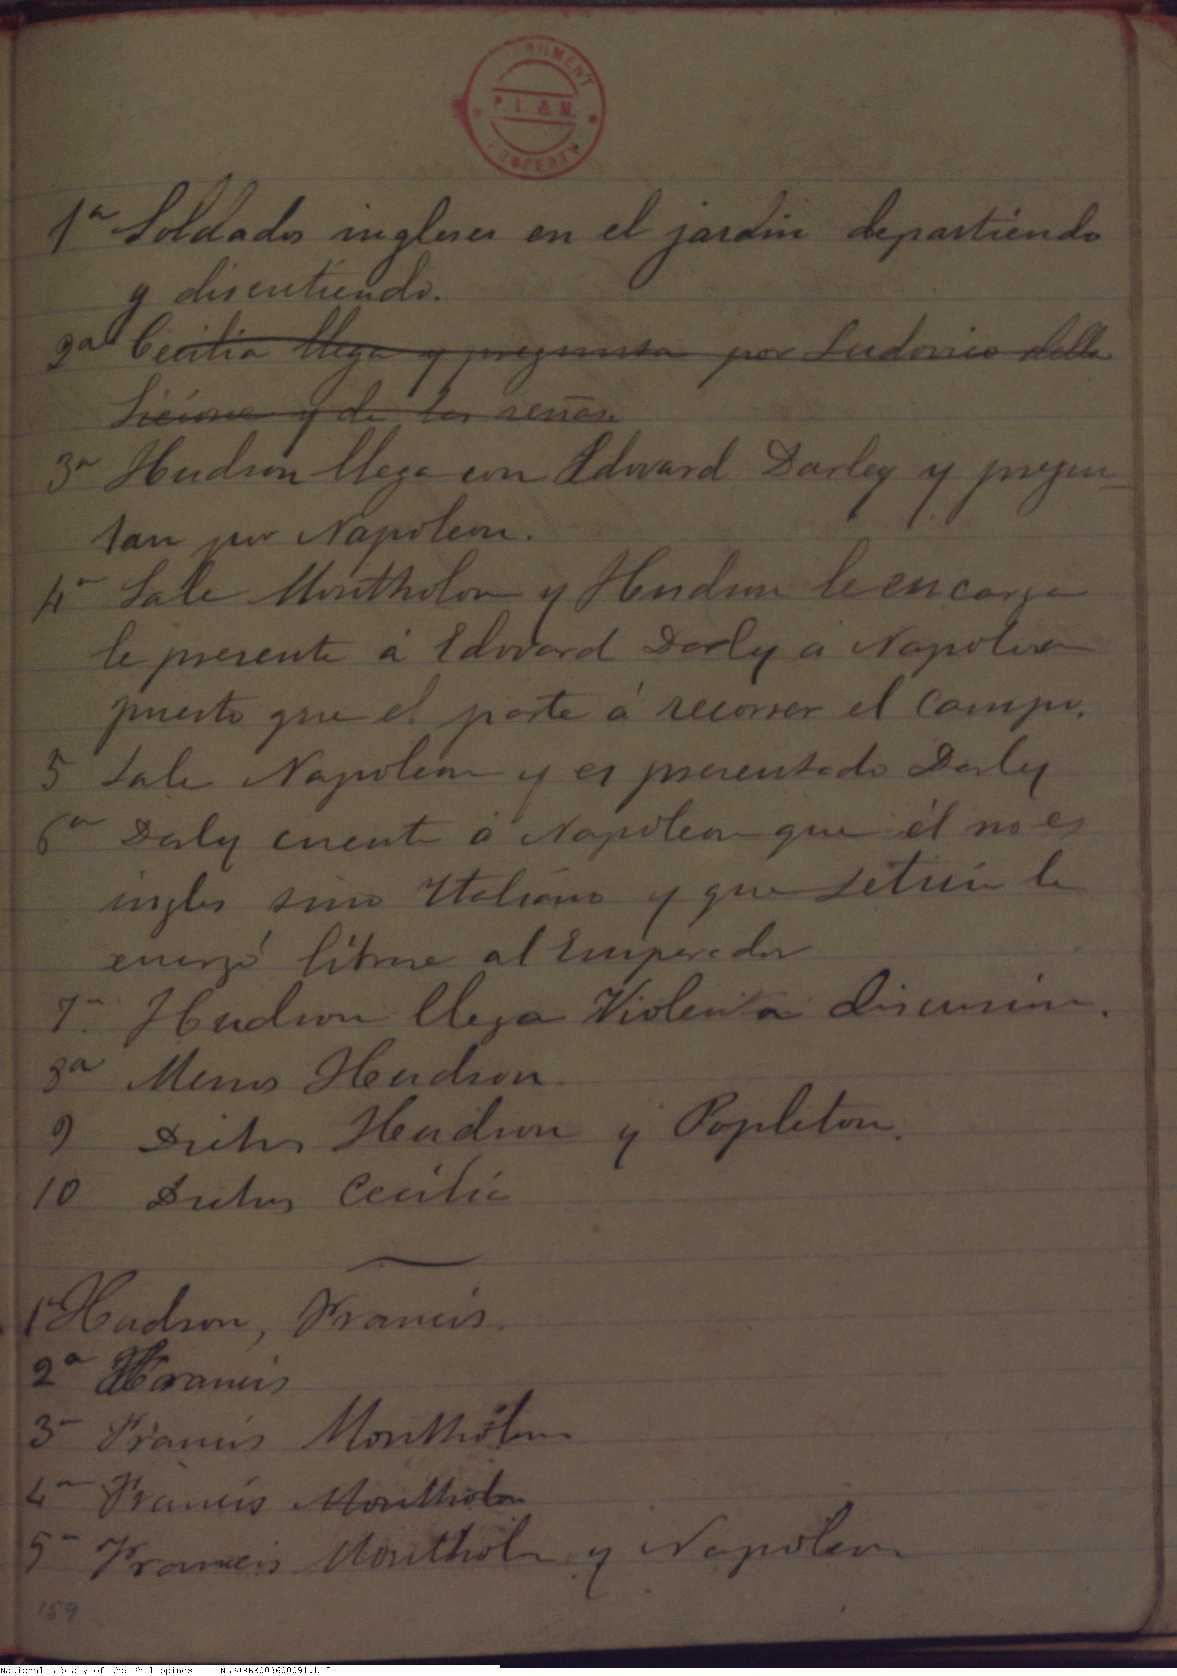 GOVERNMENT
P. L. & M.
PROPERTY
1ª Soldados ingleses en el jardin departiendo
y discutiendo.
2ª Cecilia llega y pregunta por Ludovico della
y de las señas.
3ª Hudson llega con Edward Darley y pregun-
tan por Napoleon.
4ª Sale Montholon y Hudson le encarga
le presente á Edward Darly a Napoleon
puesto que el parte á recorrer el campo.
5 Sale Napoleon y es presentado Darly
6ª Darly cuenta á Napoleon que él no es
ingles sino Italiano y que le
libre al Emperador
7ª Hudson llega Violenta discusion.
8ª Menos Hudson
9 Dichos Hudson y Popleton.
10 Dichos Cecilia
1ª Hudson, Francis.
2ª Francis
3ª Francis Montholon
4ª Francis Montholon
5ª Francis Montholon y Napoleon
159
National Library of the Philippines